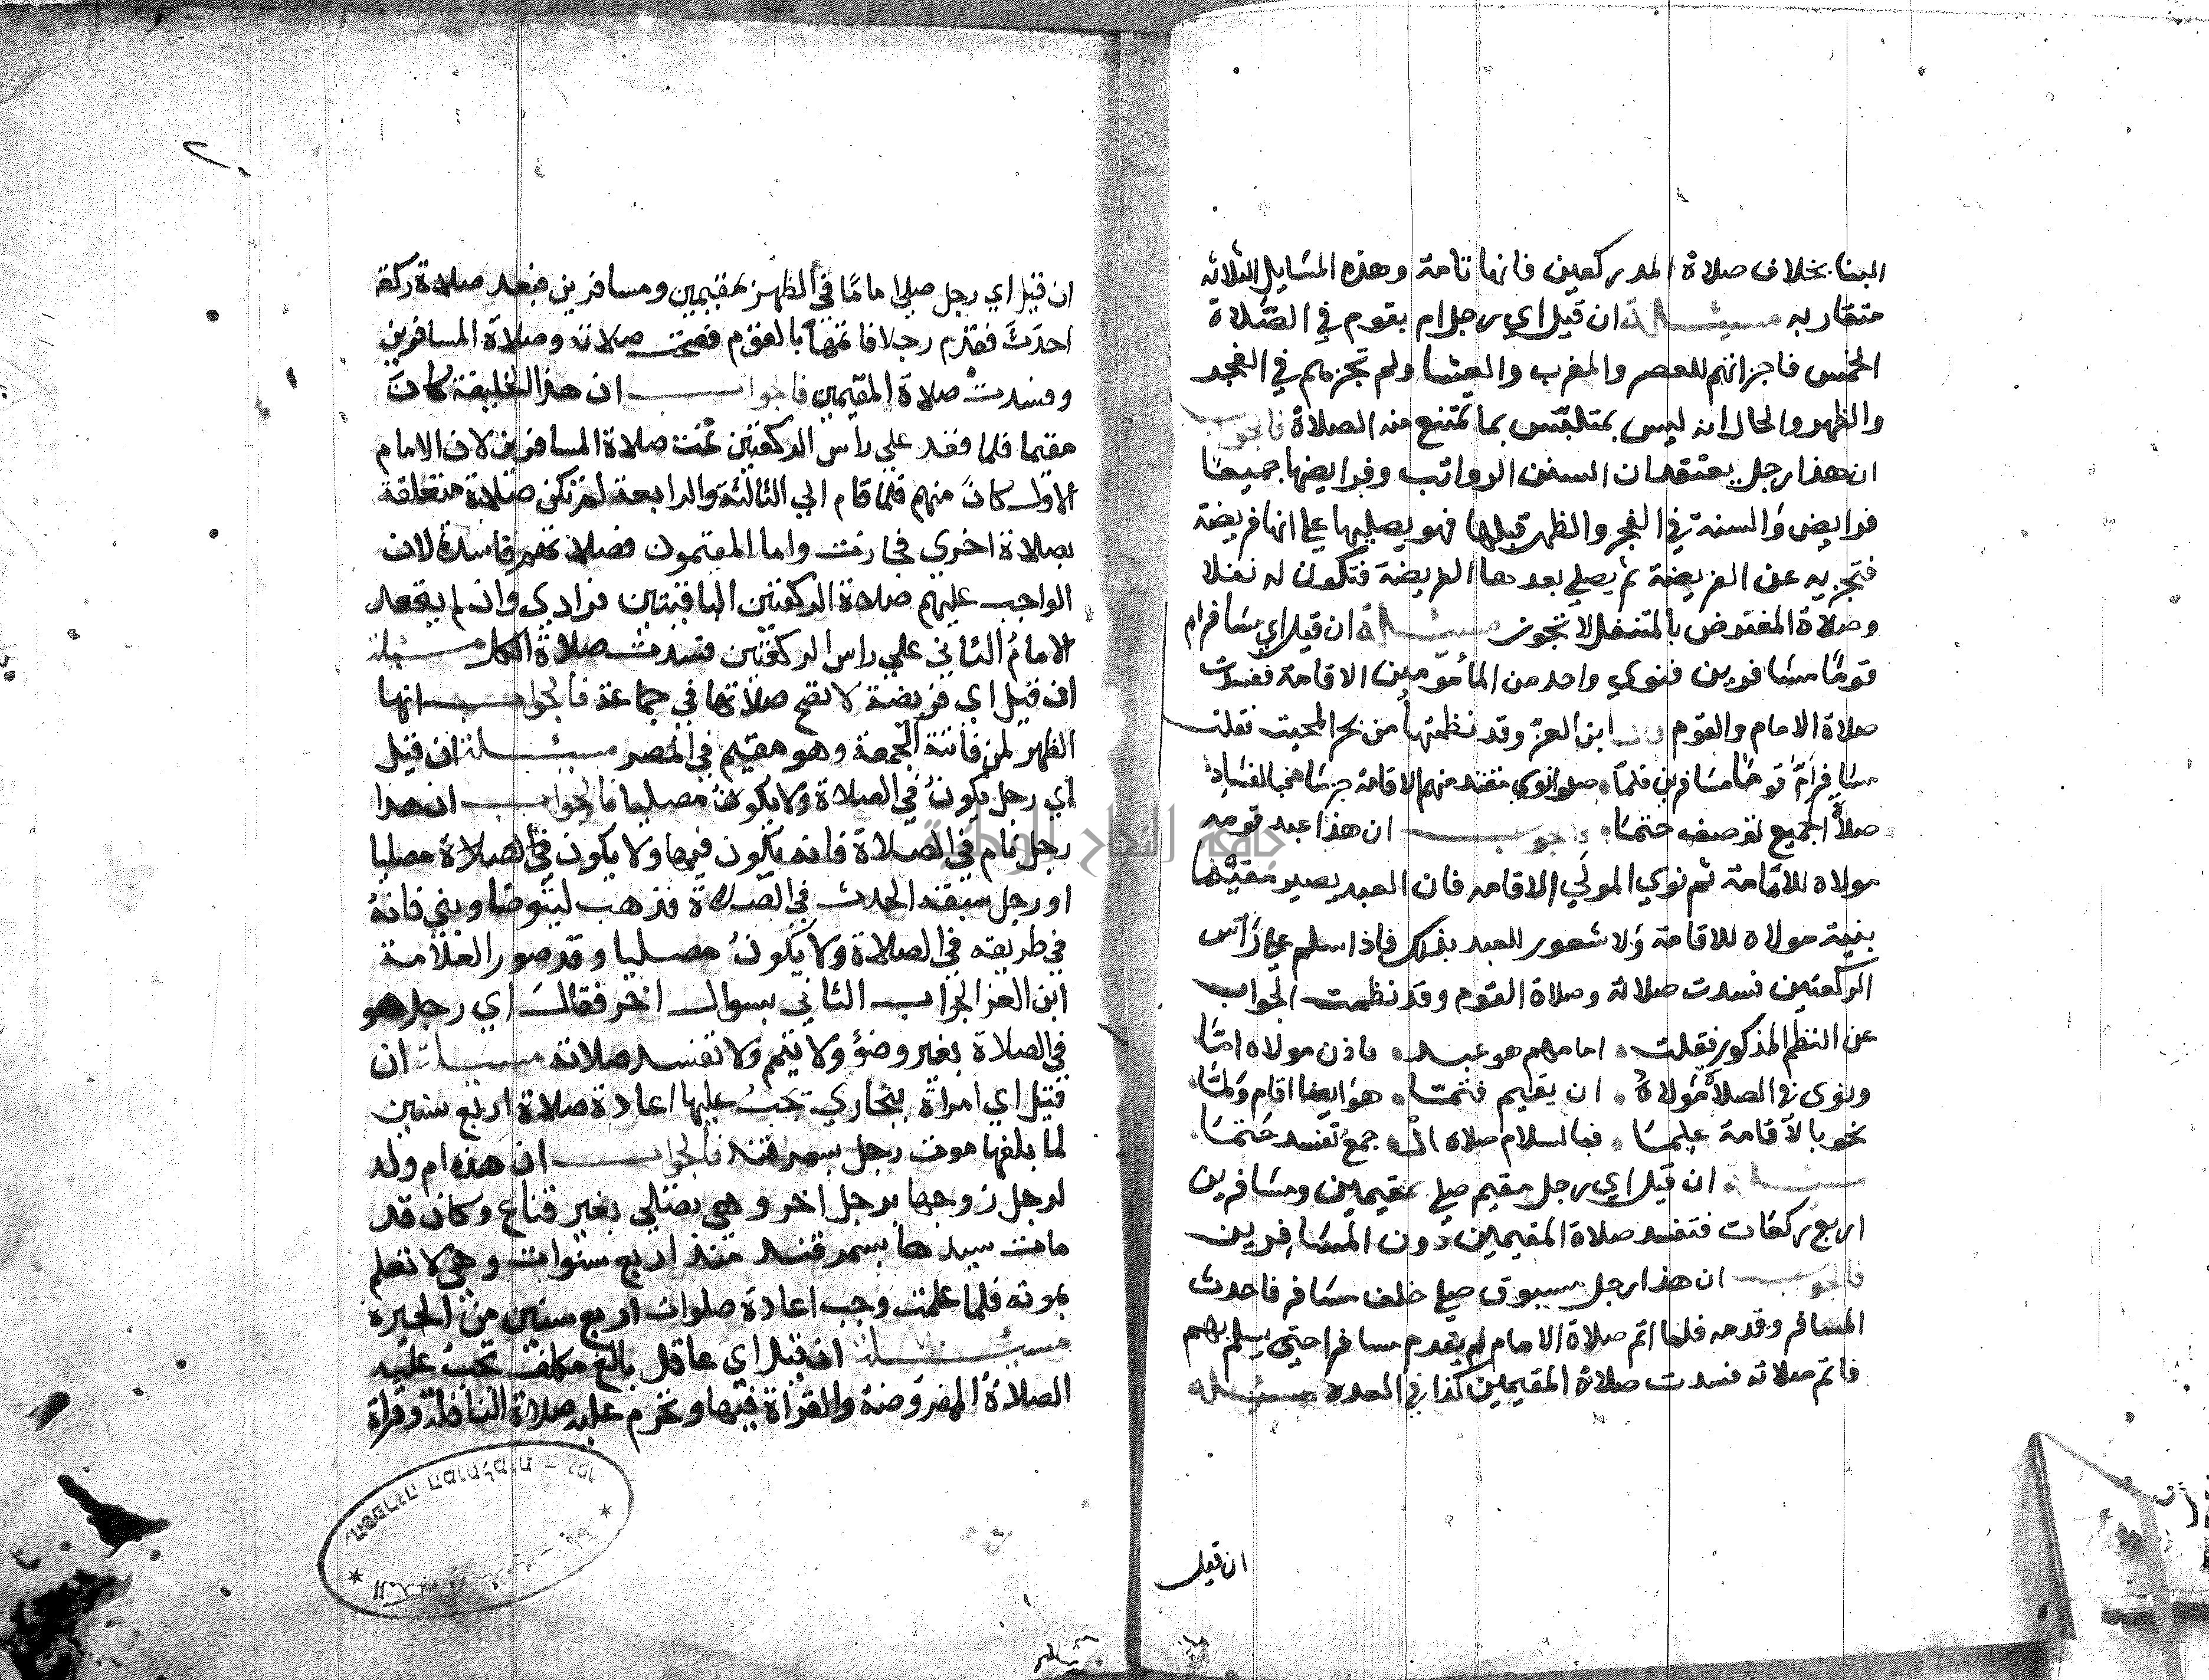 البنا بخلاف صلاة المدركين فانها تامة وهذه المسايل الثلاثه
متقاربه مسئلة ان قيل اي رجل ام بقوم في الصلاة
الخمس فاجزاتهم للعصر والمغرب والعشا ولم تجزيهم في الفجر
والظهر والحال انه ليس بمتلبس بما تمتنع منه الصلاة فالجواب
ان هذا رجل يعتقد ان السنن الرواتب وفرايضها جميعا
فرايض والسنة في الفجر والظهر قبلها فهو يصليها علي انها فريضة
فتجزيه عن الفريضة ثم يصلي بعدها الفريضة فتكون له نفلا
وصلاة المفترض بالمتنفل لا تجوز مسئلة ان قيل اي مسافر ام
قوما مسافرين فنوي واحد من المأمومين الاقامة ففسدت
صلاة الامام والقوم ابن العز وقد نظمتها من بحر المجتث فقلت
مسافر ام قوما مسافرين فلما صلوا نوي منهم الاقامة جزما
صلاة الجميع حتما فالجواب ان هذا عبد قدمه
مولاه للامامة ثم نوي المولي الاقامه فان العبد يصير مقيما
بنية مولاه للاقامة ولا شعور للعبد بذلك فاذا سلم علي رأس
الركعتين فسدت صلاته وصلاة القوم وقد نظمت الجواب
عن النظم المذكور فقلت امامهم هو عبد باذن مولاه اما
ونوي في الصلاة مولاه ان يقيم فتما هو ايضا اقام ولما
نحو بالاقامة علما فبالسلام صلاة ال جمع تفسد حتما
مسئلة ان قيل اي رجل مقيم صلي بمقيمين ومسافرين
اربع ركعات فتفسد صلاة المقيمين دون المسافرين
فالجواب ان هذا رجل مسبوق صلي خلف مسافر فاحدث
المسافر وقدمه فلما اتم صلاة الامام لم يقدم مسافرا حتي يسلم بهم
فاتم صلاته فسدت صلاة المقيمين كذا في العدة مسئله
ان قيل
ان قيل اي رجل صلي اماما في الظهر بمقيمين ومسافرين فبعد صلاة ركعة
احدث فقدم رجلا فاتمها بالقوم فصحت صلاته وصلاة المسافرين
وفسدت صلاة المقيمين فالجواب ان هذا الخليفة كان
مقيما فلما قعد علي رأس الركعتين تمت صلاة المسافرين لان الامام
الاول كان منهم فلما قام الي الثالثة والرابعة لم تكن صلاة متعلقة
بصلاة اخري فجازت واما المقيمون فصلاتهم فاسدة لان
الواجب عليهم صلاة الركعتين الباقيتين فرادي وان لم يقعد
الامام الثاني علي راس الركعتين فسدت صلاة الكل مسئلة
ان قيل اي فريضة لا تصح صلاتها في جماعة فالجواب انها
الظهر لمن فاتته الجمعة وهو مقيم في المصر مسئلة ان قيل
اي رجل يكون في الصلاة ولا يكون مصليا فالجواب ان هذا
رجل نام في الصلاة فانه يكون فيها ولا يكون في الصلاة مصليا
او رجل سبقه الحدث في الصلاة فذهب ليتوضا ويبني فانه
في طريقه في الصلاة ولا يكون مصليا وقد صور العلامة
ابن العز الجواب الثاني بسوال اخر فقال اي رجل هو
في الصلاة بغير وضؤ ولا تيمم ولا تفسد صلاته مسئلة ان
قيل اي امراة ببخاري تجب عليها اعادة صلاة اربع سنين
لما بلغها موت رجل بسمرقند فالجواب ان هذه ام ولد
لرجل زوجها برجل اخر وهي تصلي بغير قناع وكان قد
مات سيدها بسمرقند منذ اربع سنوات وهي لا تعلم
بموته فلما علمت وجب اعادة صلوات اربع سنين من الحيرة
مسئلة ان قيل اي عاقل بالغ مكلف تجب عليه
الصلاة المفروضة والقراة فيها وتحرم عليه صلاة النافلة وقراة
جامعة النجاح الوطنية